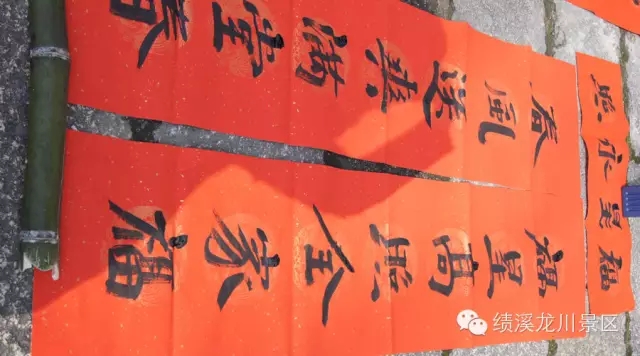 福星永照
福星高照全家福
春風送满堂春
绩溪龙川景区